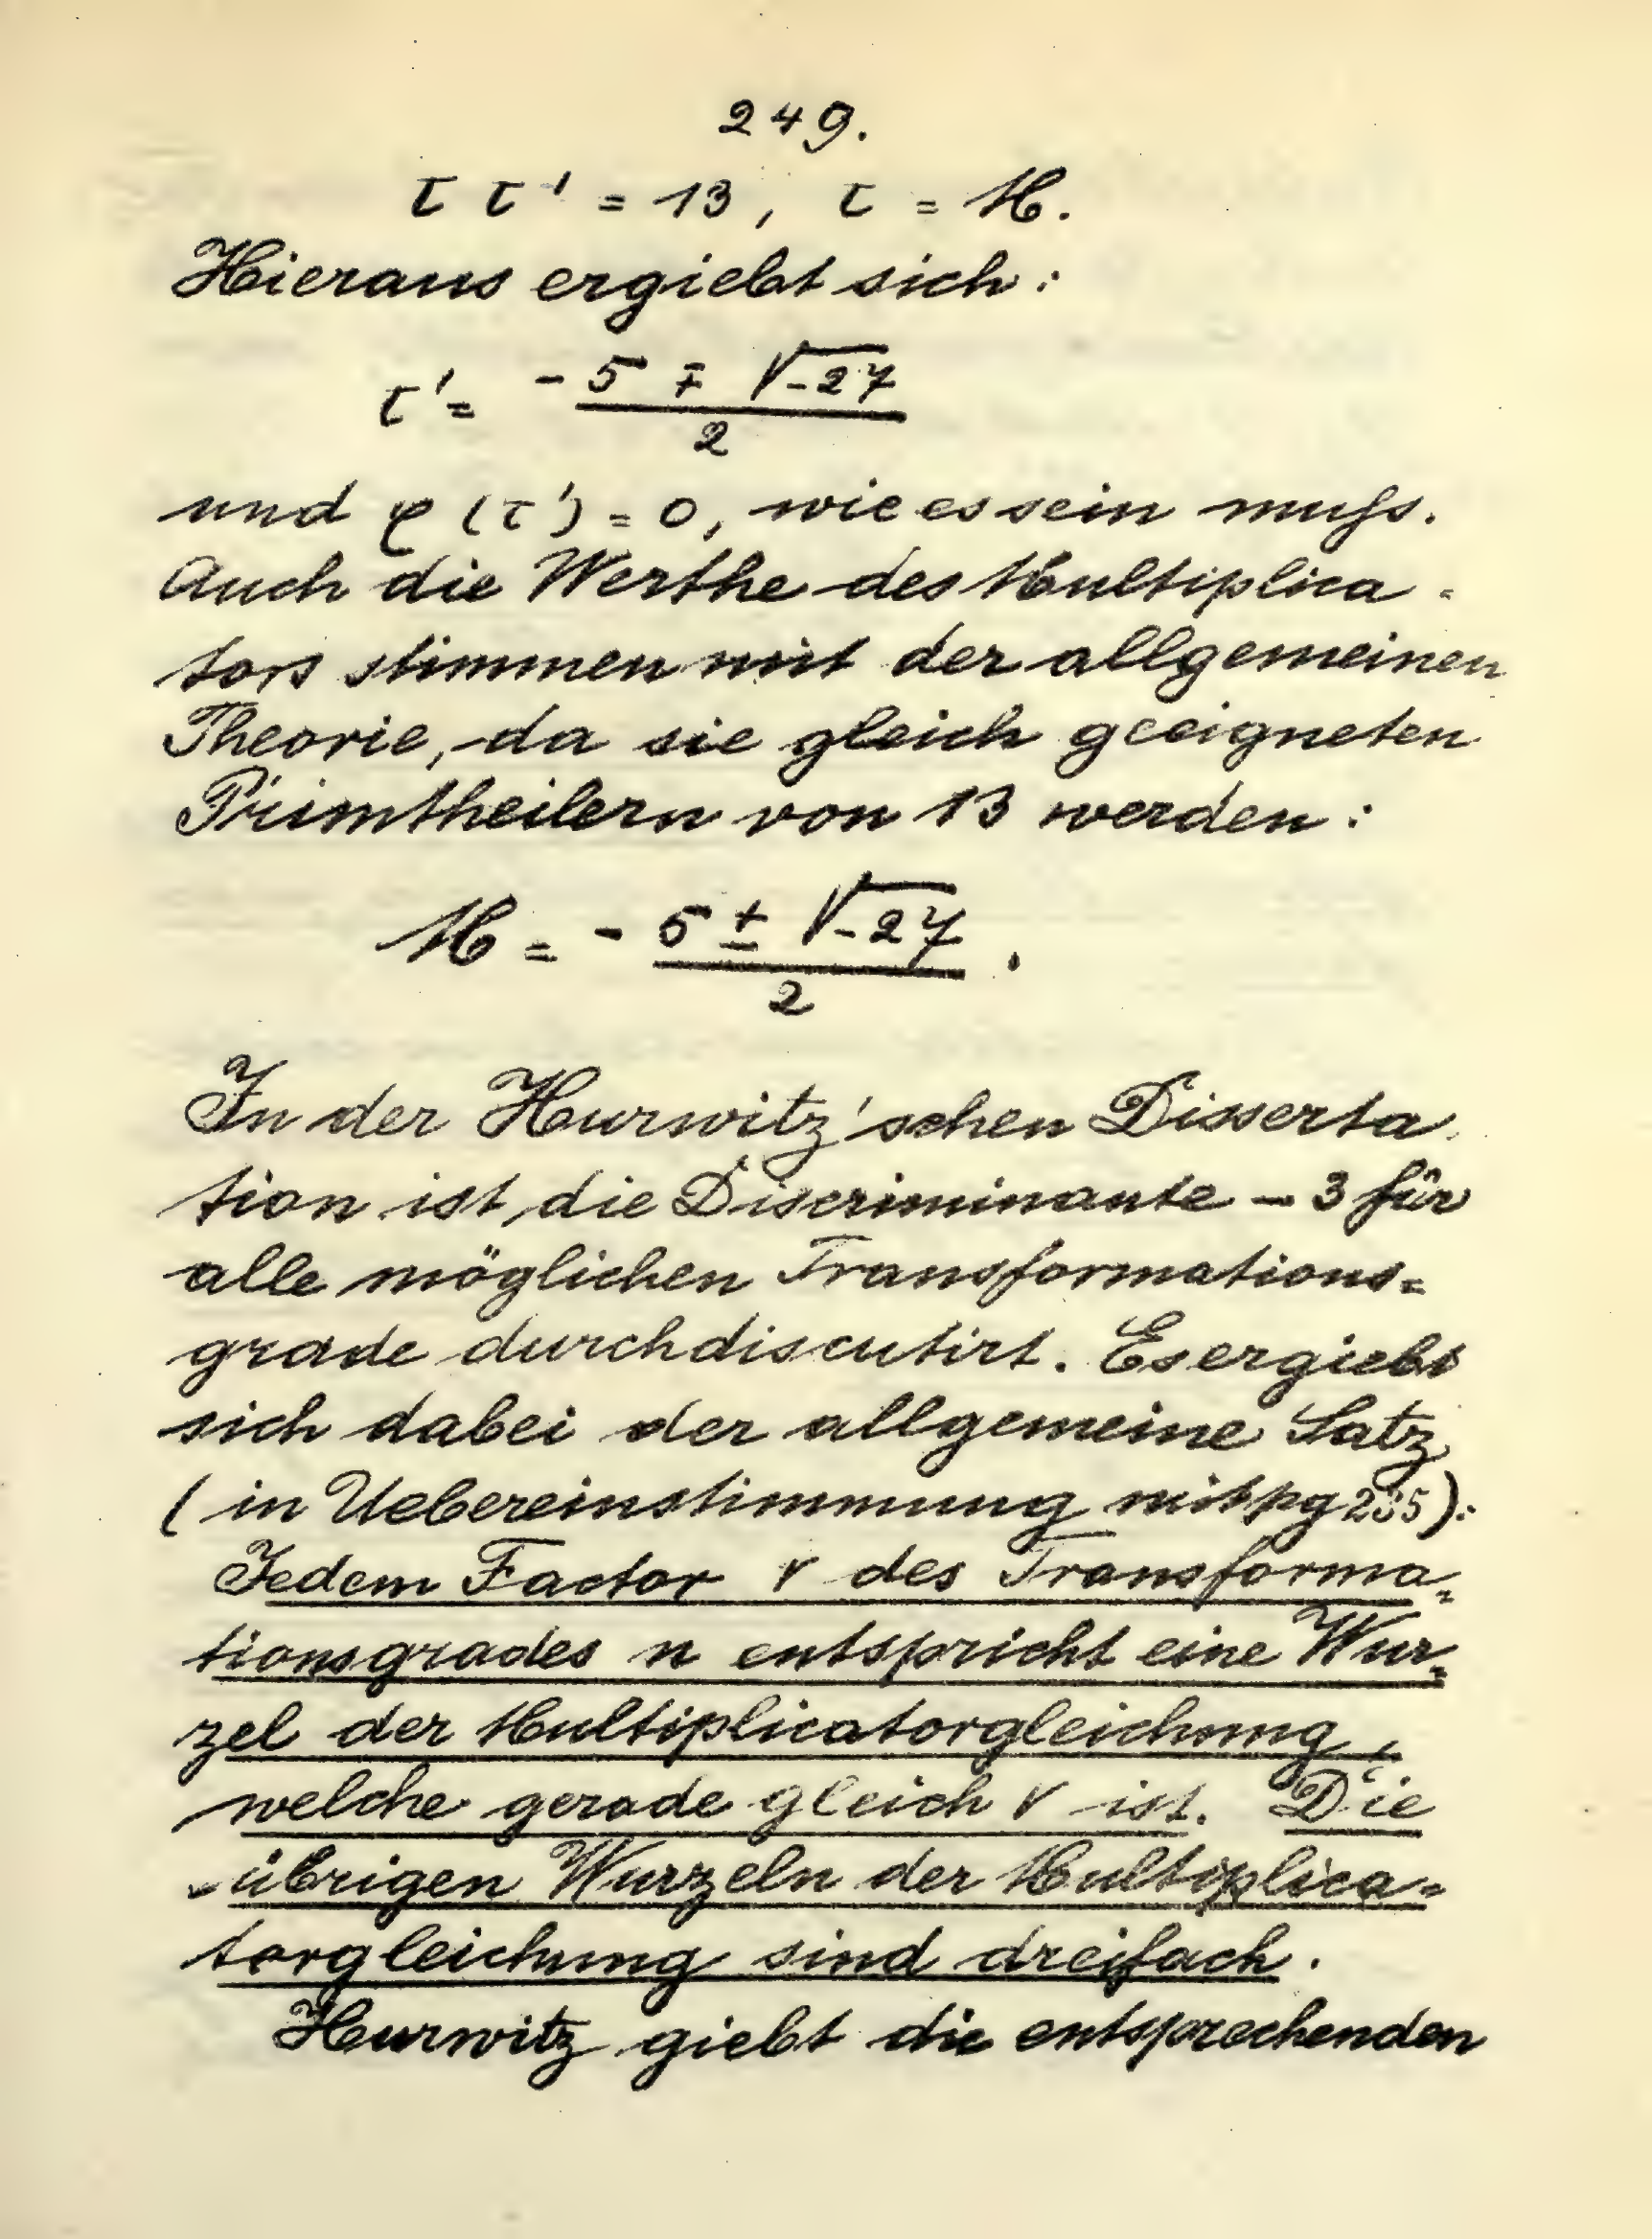 249.
τ τ' = 13, τ = M.
Hieraus ergiebt sich:
τ' = (-5 ∓ √-27)/2
und φ(τ') = 0, wie es sein muſs.
Auch die Werthe des Multiplica-
tors stimmen mit der allgemeinen
Theorie, da sie gleich geeigneten
Primtheilern von 13 werden:
M = (-5 ± √-27)/2.
In der Hurwitz'schen Disserta-
tion ist die Discriminante -3 für
alle möglichen Transformations=
grade durchdiscutirt. Es ergiebt
sich dabei der allgemeine Satz
(in Uebereinstimmung mit pg 235):
Jedem Factor r des Transforma=
tionsgrades n entspricht eine Wur=
zel der Multiplicatorgleichung,
welche gerade gleich r ist. Die
übrigen Wurzeln der Multiplica=
torgleichung sind dreifach.
Hurwitz giebt die entsprechenden